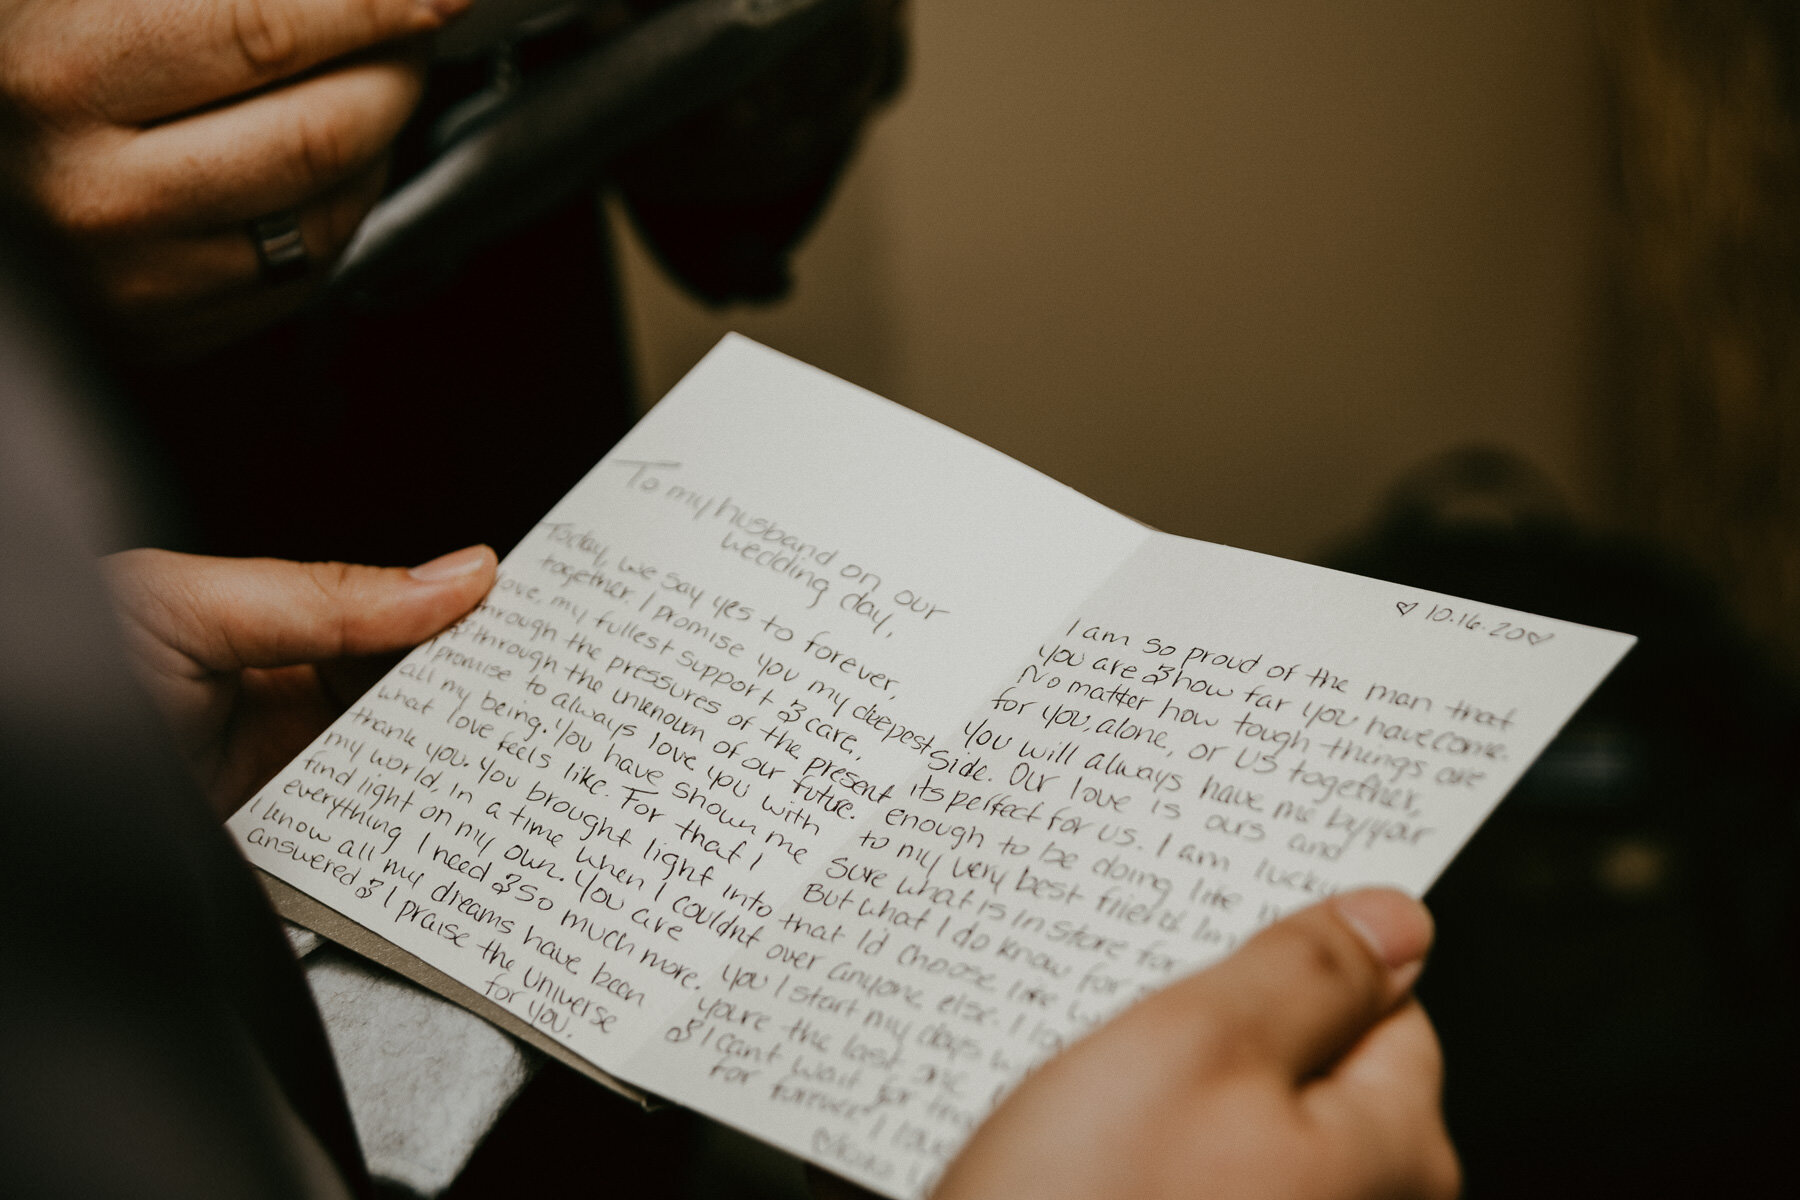 To my husband on our
wedding day,
Today, we say yes to forever,
together. I promise you my deepest
love, my fullest support & care,
through the pressures of the present
& through the unknown of our future.
I promise to always love you with
all my being. You have shown me
what love feels like. For that I
thank you. You brought light into
my world, in a time when I couldnt
find light on my own. You are
everything I need & so much more.
I know all my dreams have been
answered & I praise the universe
for you.
♡ 10.16.20♡
I am so proud of the man that
you are & how far you have come.
No matter how tough things are
for you, alone, or us together,
you will always have me by your
side. Our love is ours and
its perfect for us. I am lucky
enough to be doing life
to my very best friend. Im
sure what is in store for
But what I do know for
that Id choose life
over anyone else. I
you I start my days
youre the last one
& I cant wait for
for forever! I